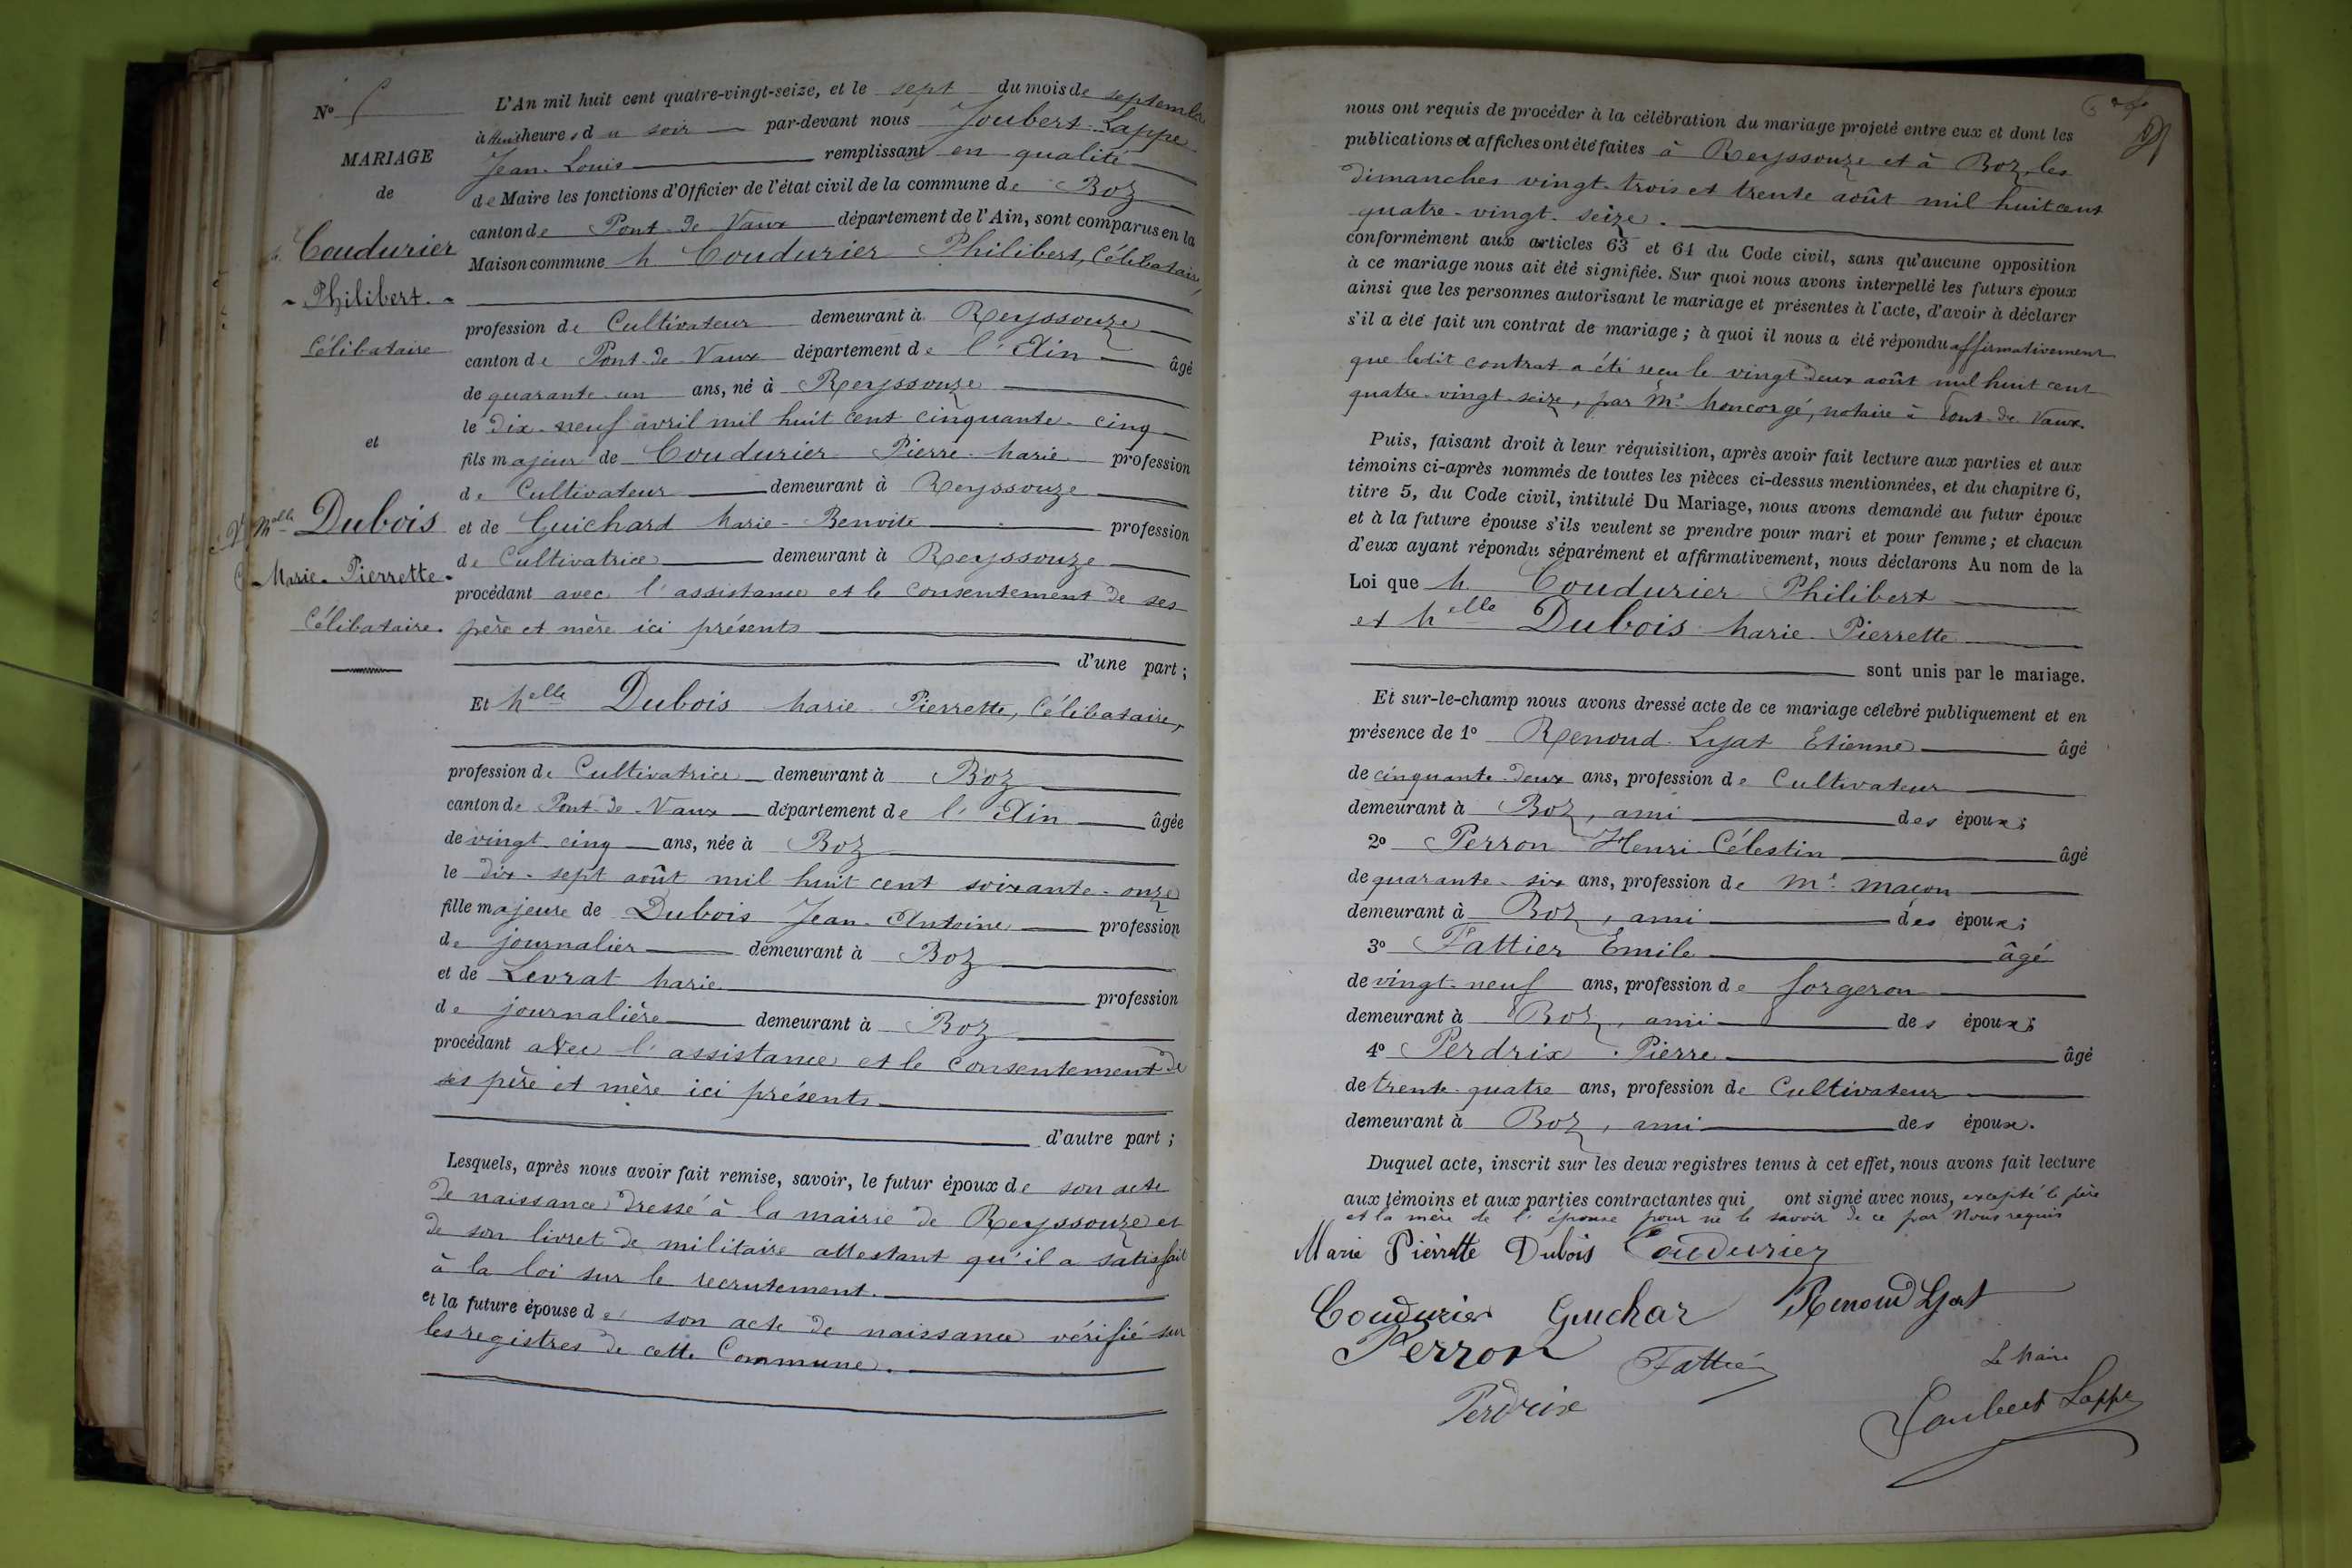 N°
MARIAGE
de
Coudurier
- Philibert. -
Célibataire
et
Melle Dubois
- Marie. Pierrette -
Célibataire.
L'An mil huit cent quatre-vingt-seize, et le sept du mois de septembre
à heures du soir par-devant nous Joubert-Lappe
Jean-Louis remplissant en qualité
de Maire les fonctions d'Officier de l'état civil de la commune de Boz
canton de Pont-de-Vaux département de l'Ain, sont comparus en la
Maison commune M. Coudurier Philibert, Célibataire,
profession de Cultivateur demeurant à Reyssouze
canton de Pont-de-Vaux département de l'Ain âgé
de quarante-un ans, né à Reyssouze
le dix-neuf avril mil huit cent cinquante-cinq
fils majeur de Coudurier Pierre-Marie profession
de Cultivateur demeurant à Reyssouze
et de Guichard Marie-Benoite profession
de Cultivatrice demeurant à Reyssouze
procédant avec l'assistance et le consentement de ses
père et mère ici présents
d'une part ;
Et Melle Dubois Marie-Pierrette, Célibataire,
profession de Cultivatrice demeurant à Boz
canton de Pont-de-Vaux département de l'Ain âgée
de vingt-cinq ans, née à Boz
le dix-sept août mil huit cent soixante-onze
fille majeure de Dubois Jean-Antoine profession
de journalier demeurant à Boz
et de Levrat Marie profession
de journalière demeurant à Boz
procédant avec l'assistance et le consentement de
ses père et mère ici présents
d'autre part ;
Lesquels, après nous avoir fait remise, savoir, le futur époux de son acte
de naissance dressé à la mairie de Reyssouze et
de son livret de militaire attestant qu'il a satisfait
à la loi sur le recrutement.
et la future épouse de son acte de naissance vérifié sur
les registres de cette Commune.
nous ont requis de procéder à la célébration du mariage projeté entre eux et dont les
publications et affiches ont été faites à Reyssouze et à Boz, les
dimanches vingt-trois et trente août mil huit cent
quatre-vingt-seize.
conformément aux articles 63 et 64 du Code civil, sans qu'aucune opposition
à ce mariage nous ait été signifiée. Sur quoi nous avons interpellé les futurs époux
ainsi que les personnes autorisant le mariage et présentes à l'acte, d'avoir à déclarer
s'il a été fait un contrat de mariage ; à quoi il nous a été répondu affirmativement
que ledit contrat a été reçu le vingt-deux août mil huit cent
quatre-vingt-seize, par Me Moncorgé, notaire à Pont-de-Vaux.
Puis, faisant droit à leur réquisition, après avoir fait lecture aux parties et aux
témoins ci-après nommés de toutes les pièces ci-dessus mentionnées, et du chapitre 6,
titre 5, du Code civil, intitulé Du Mariage, nous avons demandé au futur époux
et à la future épouse s'ils veulent se prendre pour mari et pour femme ; et chacun
d'eux ayant répondu séparément et affirmativement, nous déclarons Au nom de la
Loi que M. Coudurier Philibert
et Melle Dubois Marie-Pierrette
sont unis par le mariage.
Et sur-le-champ nous avons dressé acte de ce mariage célébré publiquement et en
présence de 1° Renoud-Lyat Etienne âgé
de cinquante-deux ans, profession de Cultivateur
demeurant à Boz, ami des époux ;
2° Perron Henri-Célestin âgé
de quarante-six ans, profession de Me maçon
demeurant à Boz, ami des époux ;
3° Fattier Emile âgé
de vingt-neuf ans, profession de forgeron
demeurant à Boz, ami des époux ;
4° Perdrix Pierre âgé
de trente-quatre ans, profession de Cultivateur
demeurant à Boz, ami des époux.
Duquel acte, inscrit sur les deux registres tenus à cet effet, nous avons fait lecture
aux témoins et aux parties contractantes qui ont signé avec nous, excepté le père
et la mère de l'épouse pour ne le savoir de ce par Nous requis
Marie Pièrrette Dubois Coudurier
Coudurier Guichar Renoud Lyat
Perron Fattier
Le Maire
Perdrix
Joubert Lappe